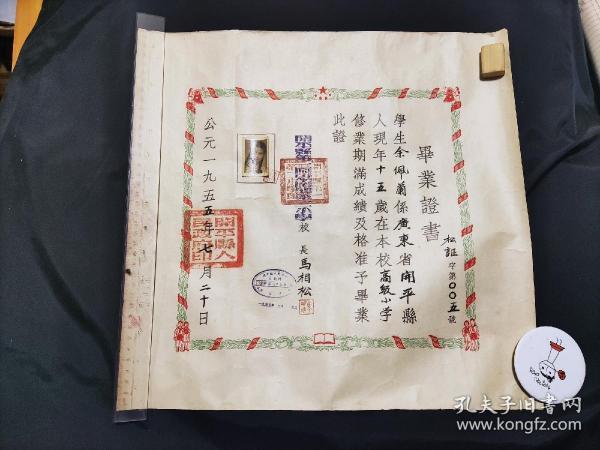 畢業證書
松証字第00五號
學生余佩蘭係廣東省開平縣
人現年十五歲在本校高級小学
修業期滿成績及格准予畢業
此證
校長馬相松
公元一九五五年七月二十日
孔夫子旧书网
www.kongfz.com